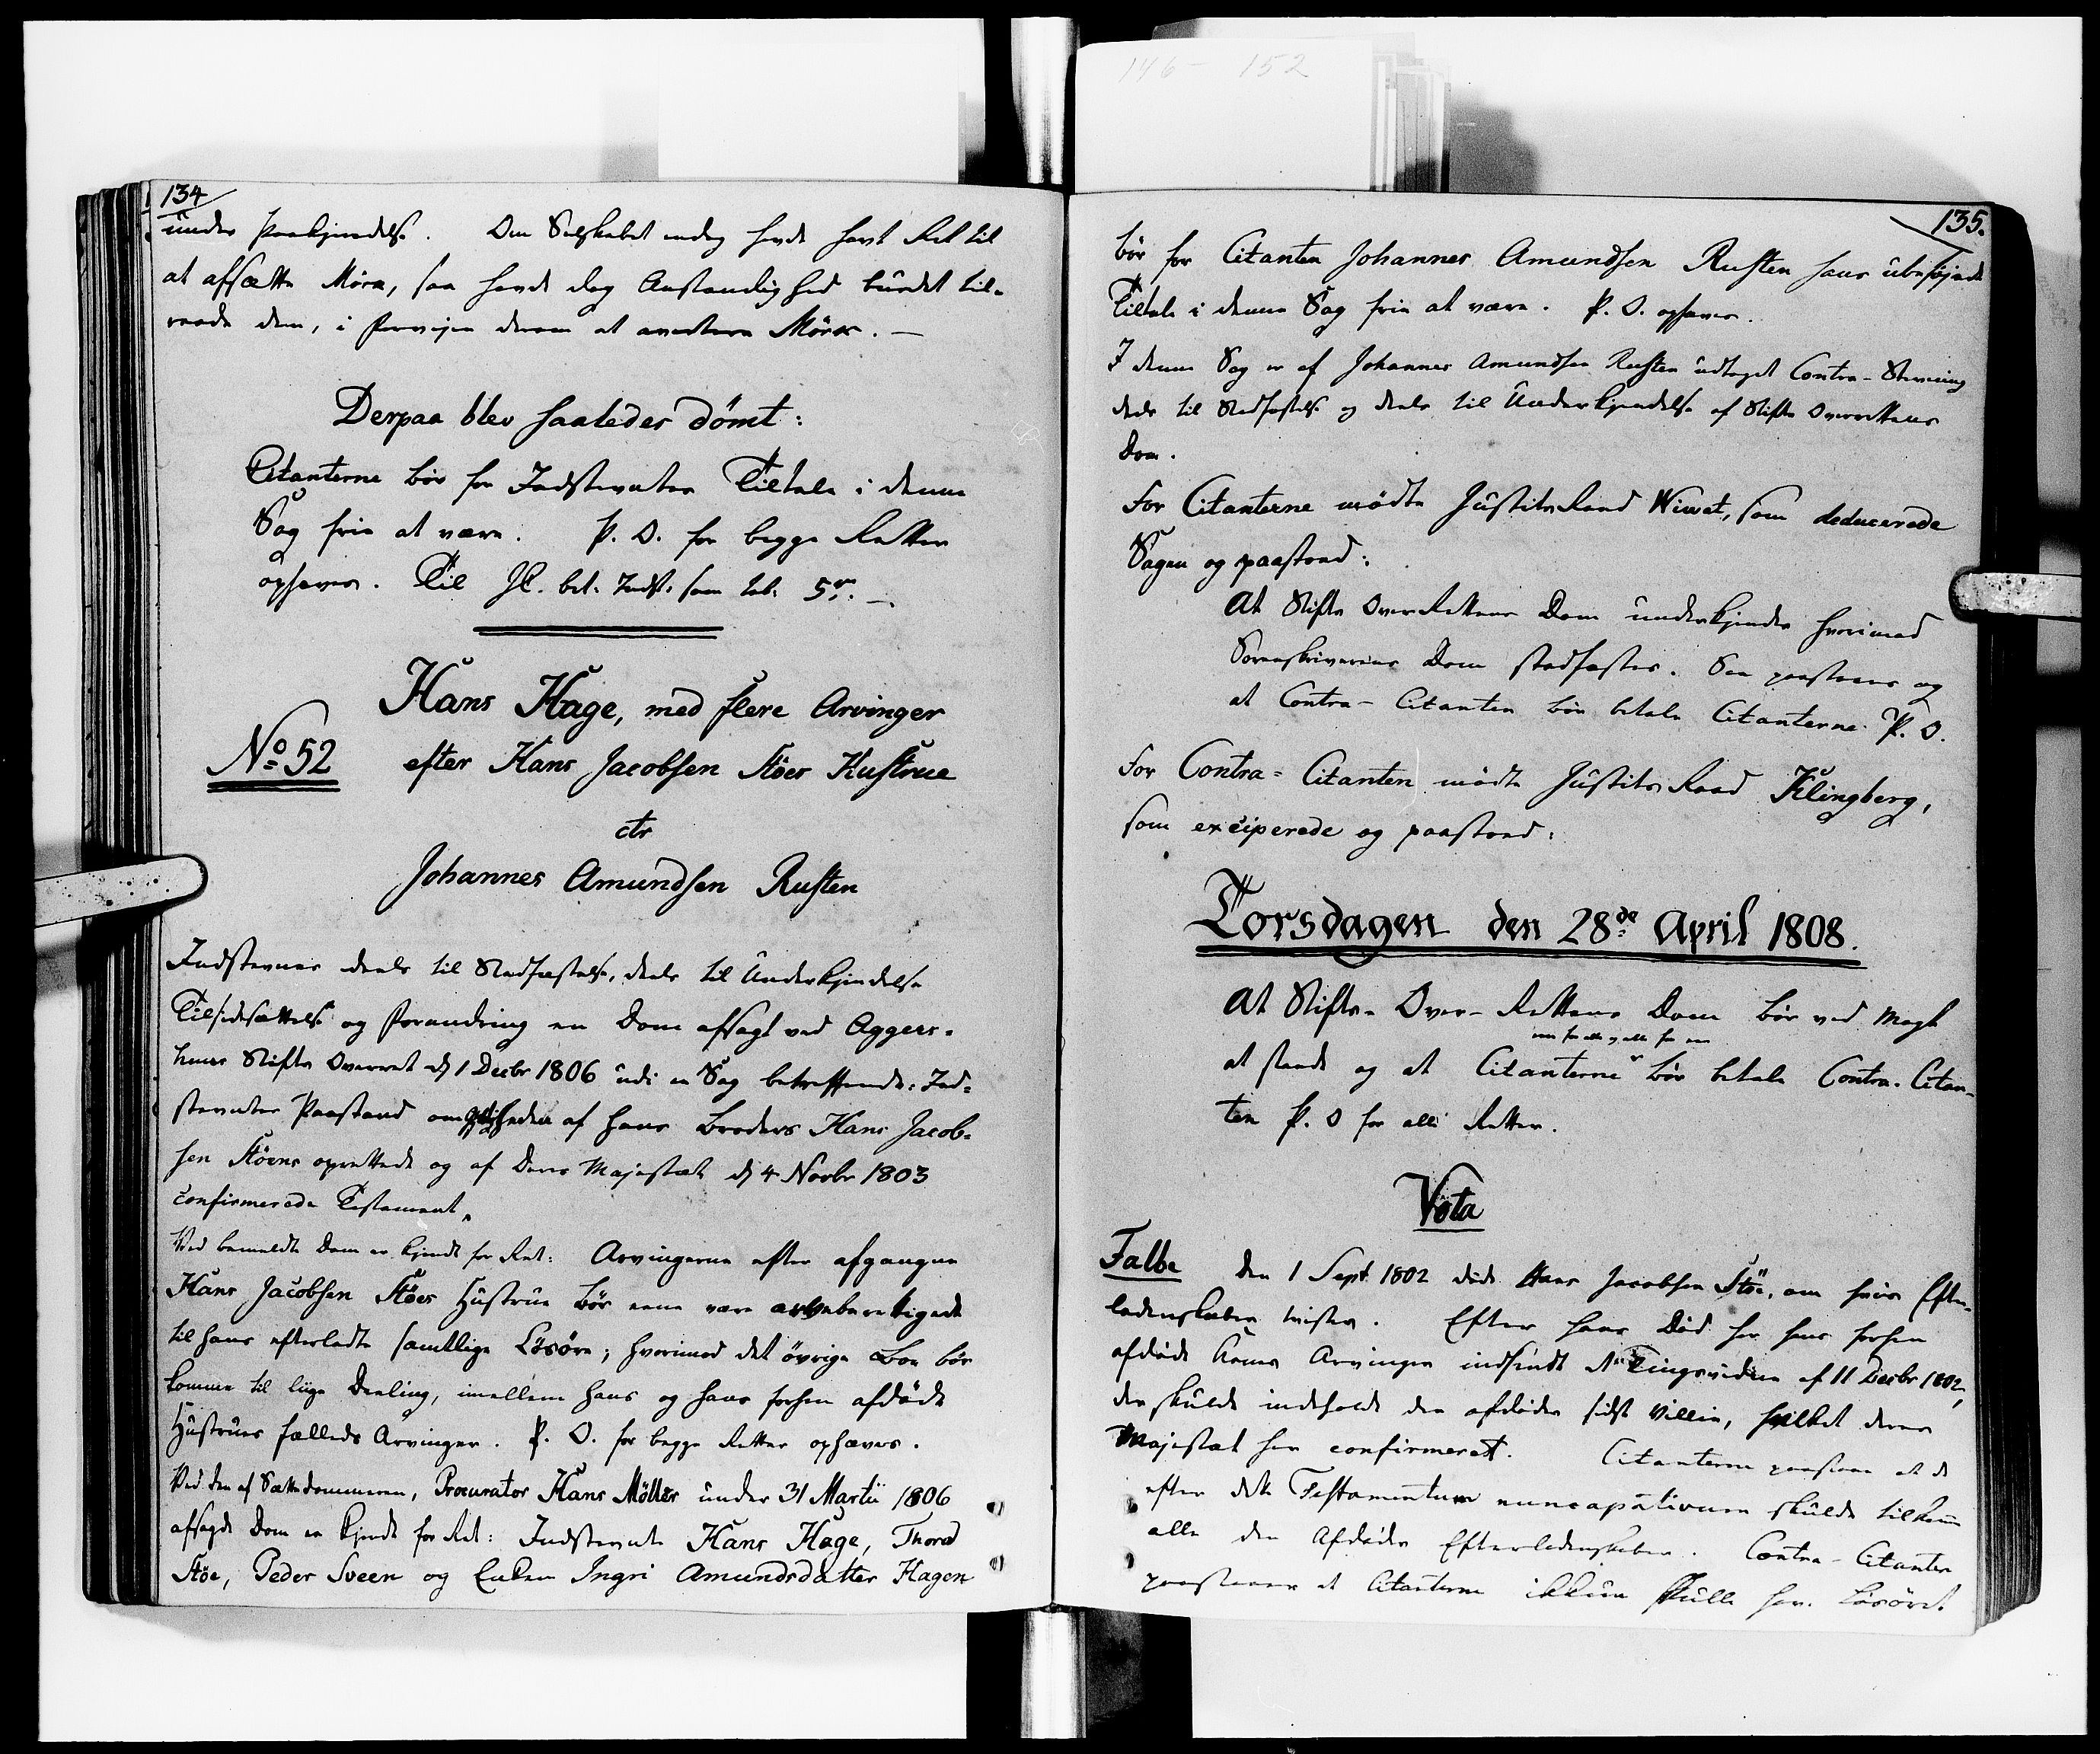 134
under Paakjendelse. Om Selskabet endog havde havt Ret til
at afsætte Mørk, saa havde dog Anstændighed burdet til-
raade dem, i Forvejen derom at avertere Mørk. —
Derpaa blev saaledes dømt:
Citanterne bør for Indstevntes Tiltale i denne
Sag frie at være. P. O. for begge Retter
ophæves. Til JC. bet. Indst. som tab. 5 r. —
Hans Hage, med flere Arvinger
No 52 efter Hans Jacobsen Støes Hustrue
ctr
Johannes Amundsen Rusten
Indstevnes deels til Stadfæstelse, deels til Underkjendelse
Tilsidesættelse og Forandring en Dom afsagt ved Aggers-
huus Stifts Overret d 1 Decbr 1806 udi en Sag betreffende: Ind-
stevntes Paastand om Gyldigheden af hans Broders Hans Jacob-
sen Støens oprettede og af Deres Majestæt d 4 Novbr 1803
confirmerede Testament.
Ved bemeldte Dom er kjendt for Ret: Arvingerne efter afgangne
Hans Jacobsen Støes Hustrue bør eene være arveberettigede
til hans efterladte samtlige Løsøre; hvorimod det øvrige Boe bør
komme til liige Deeling, imellem hans og hans forhen afdøde
Hustrues fælleds Arvinger. P. O. for begge Retter ophæves.
Ved den af Sættedommeren, Procurator Hans Møller under 31 Martii 1806
afsagde Dom er kjendt for Ret: Indstevnte Hans Hage, Thored
Støe, Peder Sveen og Enken Ingri Amundsdatter Hagen
135.
bør for Citanten Johannes Amundsen Rusten hans ubeføjede
Tiltale i denne Sag frie at være. P. O. ophæves.
I denne Sag er af Johannes Amundsen Rusten udtaget Contra-Stevning
deels til Stadfæstelse og deels til Underkjendelse af Stifts Overrettens
Dom.
For Citanterne mødte JustitsRaad Wiwet, som deducerede
Sagen og paastod:
At Stifts OverRettens Dom underkjendes hvorimod
Sorenskriverens Dom stadfæstes. Saa paastaaes og
at Contra-Citanten bør betale Citanterne P. O.
For Contra-Citanten mødte JustitsRaad Klingberg,
som exciperede og paastod:
Torsdagen den 28de April 1808.
At Stifts-Over-Rettens Dom bør ved Magt
een for alle og alle for een
at stande og at Citanterne bør betale Contra-Citan-
ten P. O for alle Retter.
Vota
Falbe Den 1 Sept. 1802 døde Hans Jacobsen Støe, om hvis Efter-
ladenskaber tvistes. Efter hans Død har hans forhen
afdøde Kones Arvinger indsendt et Tingsvidne af 11 Decbr 1802,
der skulde indeholde den afdødes sidste Villie, hvilket Deres
Majestæt har confirmeret. Citanterne paastaae at de
efter dette Testamentum nuncupativum skulde tilkomme
alle den Afdødes Efterladenskaber. Contra-Citanten
paastaaer at Citanterne ikkun skulle have Løsøret
146 - 152